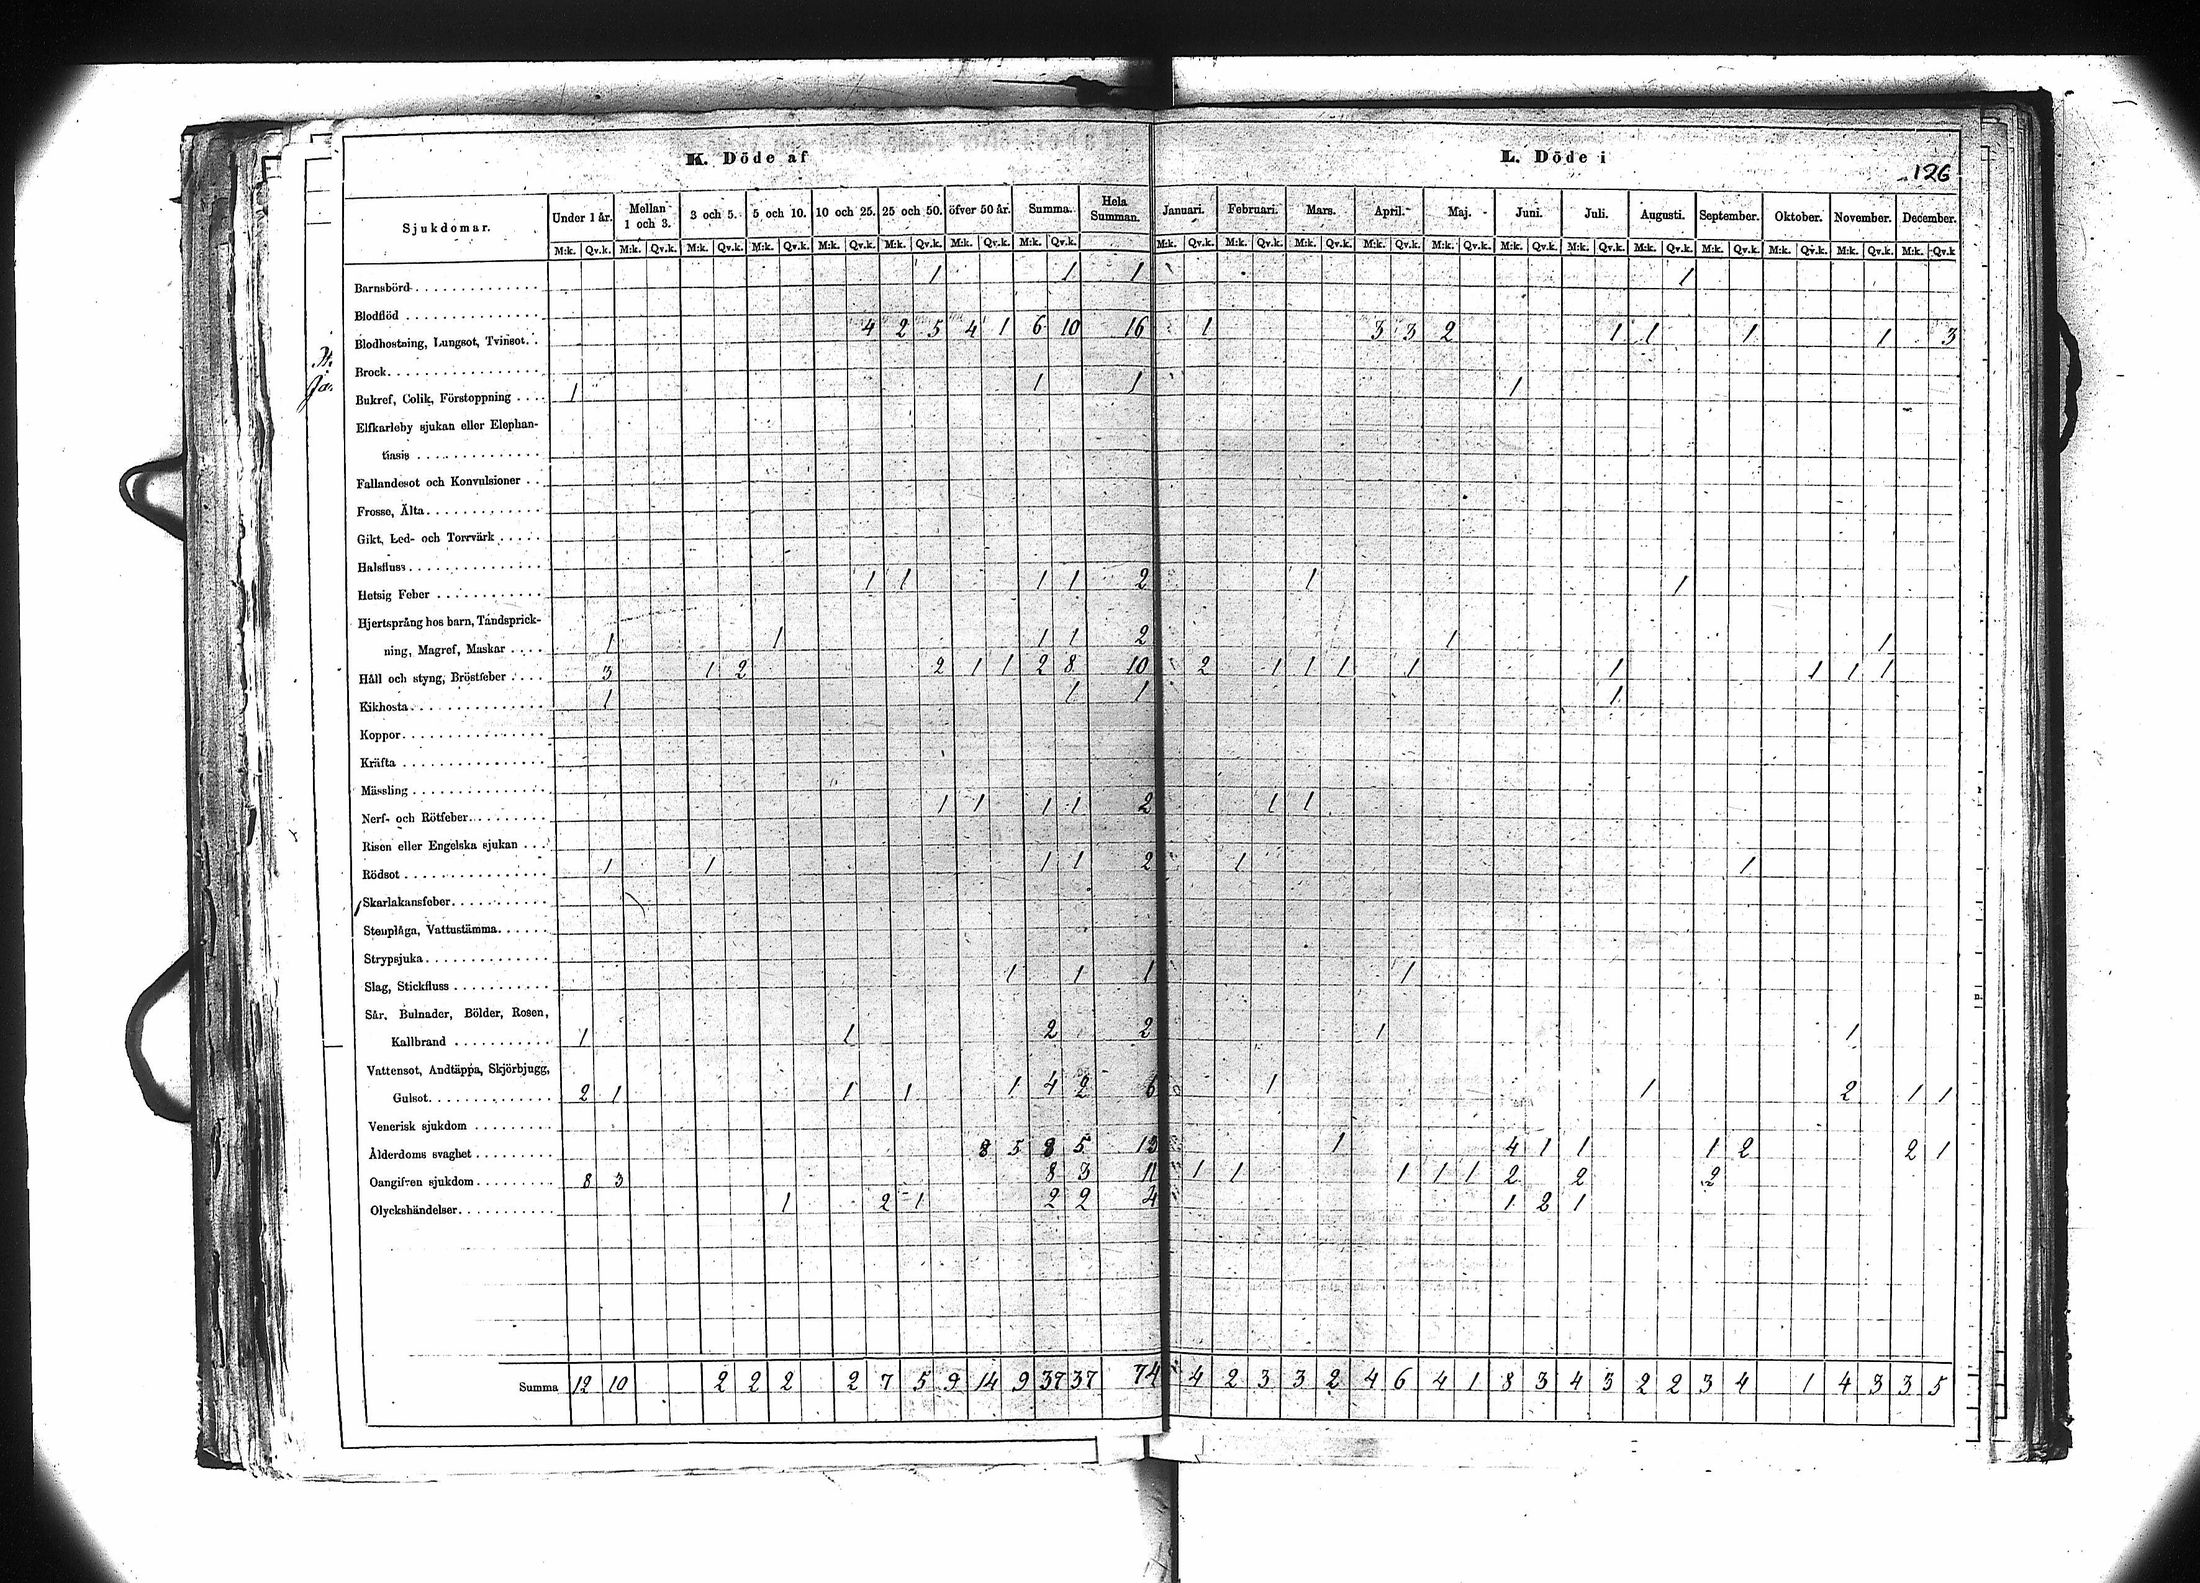 K. Döde af
L. Döde i
126
Sjukdomar. Under 1 år. Mellan 1 och 3. 3 och 5. 5 och 10. 10 och 25. 25 och 50. öfver 50 år. Summa. Hela Summan. Januari. Februari. Mars. April. Maj. Juni. Juli. Augusti. September. Oktober. November. December.
M:k. Qv.k. M:k. Qv.k. M:k. Qv.k. M:k. Qv.k. M:k. Qv.k. M:k. Qv.k. M:k. Qv.k. M:k. Qv.k. M:k. Qv.k. M:k. Qv.k. M:k. Qv.k. M:k. Qv.k. M:k. Qv.k. M:k. Qv.k. M:k. Qv.k. M:k. Qv.k. M:k. Qv.k. M:k. Qv.k. M:k. Qv.k. M:k. Qv.k
Barnsbörd 1 1 1 1
Blodflöd
Blodhostning, Lungsot, Tvinsot. 4 2 5 4 1 6 10 16 1 3 3 2 1 1 1 1 3
Brock
Bukref, Colik, Förstoppning 1 1 1 1
Elfkarleby sjukan eller Elephan-
tiasis
Fallandesot och Konvulsioner
Frosse, Älta
Gikt, Led- och Torrvärk
Halsfluss
Hetsig Feber 1 1 1 1 2 1 1
Hjertsprång hos barn, Tandsprick-
ning, Magref, Maskar 1 1 1 1 2 1 1
Håll och styng, Bröstfeber 3 1 2 2 1 1 2 8 10 2 1 1 1 1 1 1 1 1
Kikhosta 1 1 1 1
Koppor
Kräfta
Mässling
Nerf- och Rötfeber 1 1 1 1 2 1 1
Risen eller Engelska sjukan
Rödsot 1 1 1 1 2 1 1
Skarlakansfeber
Stenplåga, Vattustämma
Strypsjuka
Slag, Stickfluss 1 1 1 1
Sår, Bulnader, Bölder, Rosen,
Kallbrand 1 1 2 2 1 1
Vattensot, Andtäppa, Skjörbjugg,
Gulsot 2 1 1 1 1 4 2 6 1 1 2 1 1
Venerisk sjukdom
Ålderdoms svaghet 8 5 8 5 13 1 4 1 1 1 2 2 1
Oangifven sjukdom 8 3 8 3 11 1 1 1 1 1 2 2 2
Olyckshändelser 1 2 1 2 2 4 1 2 1
Summa 12 10 2 2 2 2 7 5 9 14 9 37 37 74 4 2 3 3 2 4 6 4 1 8 3 4 3 2 2 3 4 1 4 3 3 5